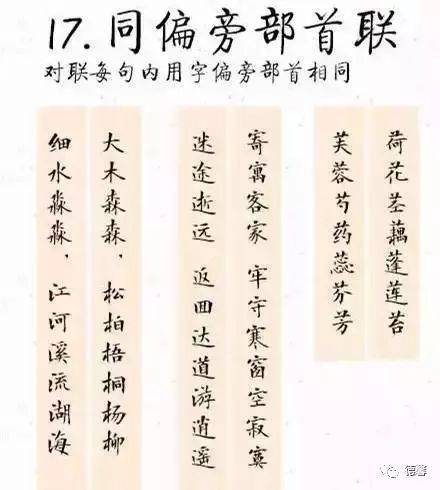 17.同偏旁部首联
对联每句内用字偏旁部首相同
荷花茎藕蓬莲苔
芙蓉芍药蕊芬芳
寄寓客家 牢守寒窗空寂寞
迷途逝远 返回达道游逍遥
大木森森,松柏梧桐杨柳
细水淼淼,江河溪流湖海
德馨